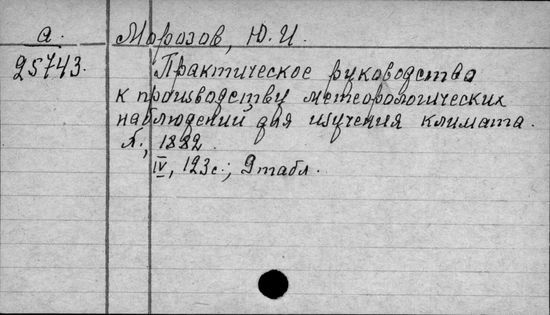 а. Морозов, Ю. И.
25743. Практическое руководство
к производству метеорологических
наблюдений для изучения климата.
1882
IV, 123с.; 9 табл.